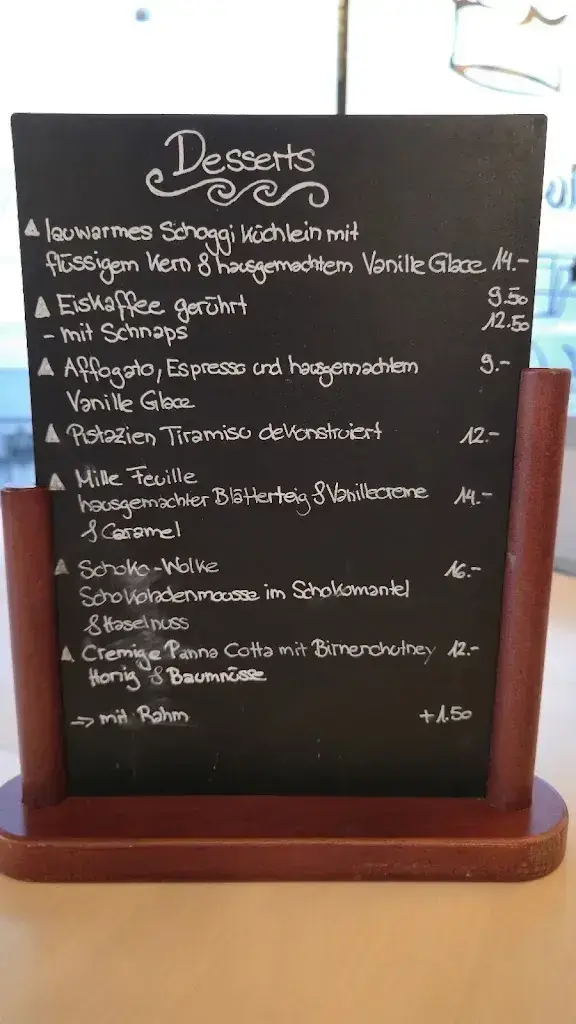 Desserts
lauwarmes Schoggi Küchlein mit
flüssigem Kern & hausgemachtem Vanille Glace 14.-
Eiskaffee gerührt 9.50
- mit Schnaps 12.50
Affogato, Espresso und hausgemachtem 9.-
Vanille Glace
Pistazien Tiramisu dekonstruiert 12.-
Mille Feuille
hausgemachter Blätterteig & Vanillecreme 14.-
& Caramel
Schoko-Wolke 16.-
Schokoladenmousse im Schokomantel
& Haselnuss
Cremige Panna Cotta mit Birnenchutney 12.-
Honig & Baumnüsse
-> mit Rahm +1.50